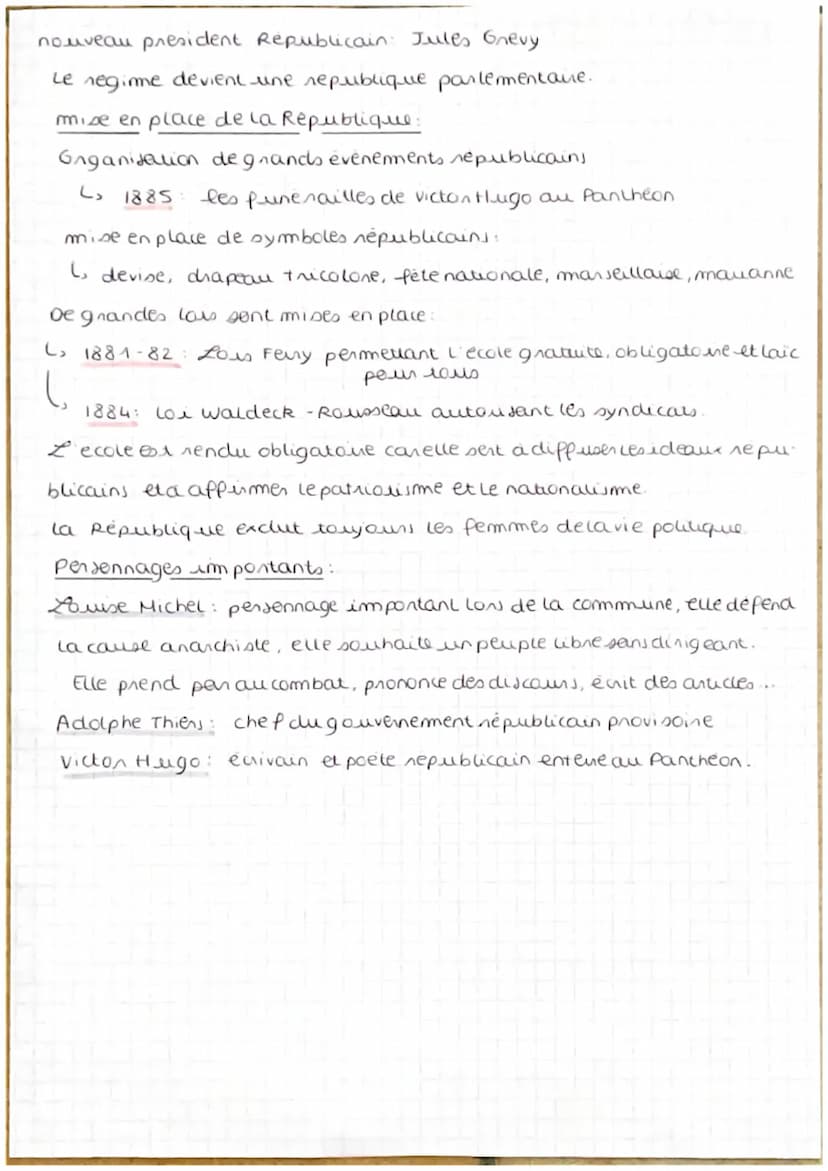 nouveau president Républicain: Jules Grévy
Le régime devient une république parlementaire.
mise en place de la République:
Organisation de grands événements républicains
↳ 1885: les funérailles de Victor Hugo au Panthéon
mise en place de symboles républicains:
↳ devise, drapeau tricolore, fête nationale, marseillaise, marianne
De grandes lois sont mises en place:
↳ 1881-82: Lois Ferry permettant l'école gratuite, obligatoire et laïc
pour tous
↳ 1884: Loi Waldeck-Rousseau autorisant les syndicats.
L'école est rendu obligatoire car elle sert à diffuser les idéaux répu-
blicains et à affirmer le patriotisme et le nationalisme.
La République exclut toujours les femmes de la vie politique.
Personnages importants:
Louise Michel: personnage important lors de la commune, elle défend
la cause anarchiste, elle souhaite un peuple libre sans dirigeant.
Elle prend par au combat, prononce des discours, écrit des articles...
Adolphe Thiers: chef du gouvernement républicain provisoire
Victor Hugo: écrivain et poète republicain enterré au Panthéon.